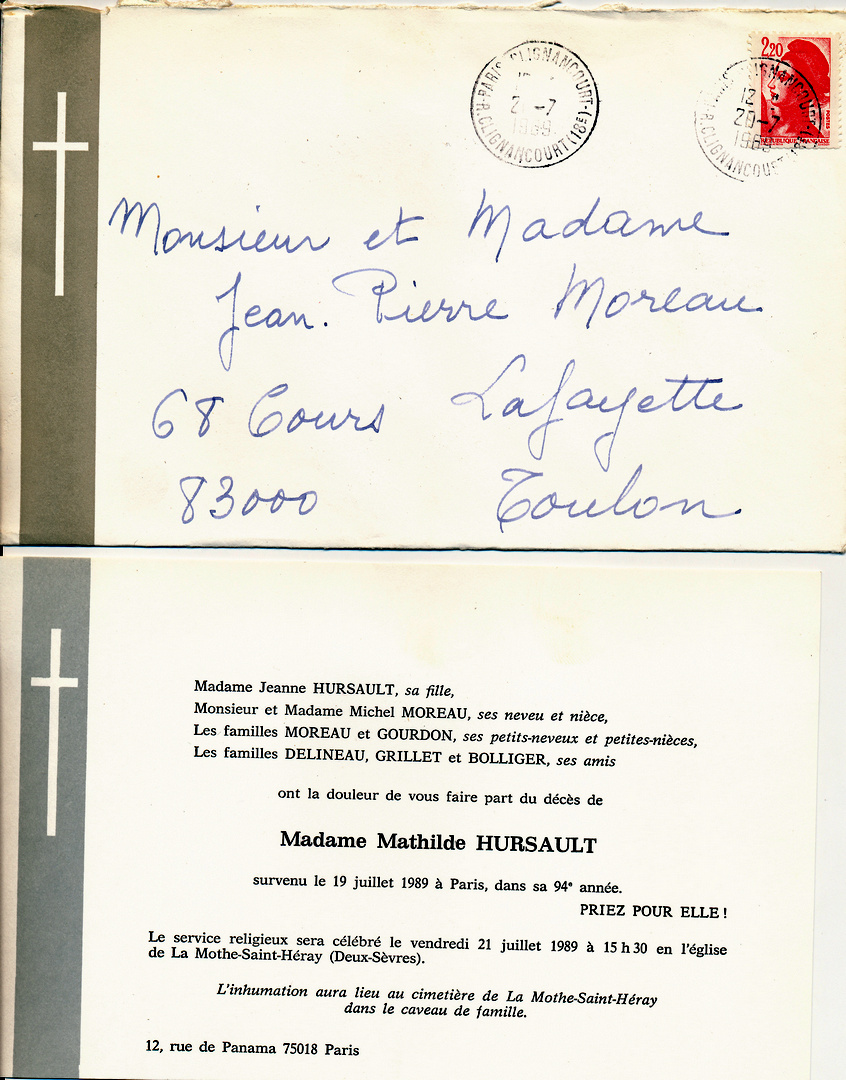 PARIS CLIGNANCOURT
R. CLIGNANCOURT (18E)
-7
1989
2,20
POSTES
REPUBLIQUE FRANÇAISE
12
20-7
R. CLIGNANCOURT
Monsieur et Madame
Jean. Pierre Moreau
68 Cours Lafayette
83000 Toulon.
Madame Jeanne HURSAULT, sa fille,
Monsieur et Madame Michel MOREAU, ses neveu et nièce,
Les familles MOREAU et GOURDON, ses petits-neveux et petites-nièces,
Les familles DELINEAU, GRILLET et BOLLIGER, ses amis
ont la douleur de vous faire part du décès de
Madame Mathilde HURSAULT
survenu le 19 juillet 1989 à Paris, dans sa 94e année.
PRIEZ POUR ELLE !
Le service religieux sera célébré le vendredi 21 juillet 1989 à 15 h 30 en l'église
de La Mothe-Saint-Héray (Deux-Sèvres).
L'inhumation aura lieu au cimetière de La Mothe-Saint-Héray
dans le caveau de famille.
12, rue de Panama 75018 Paris